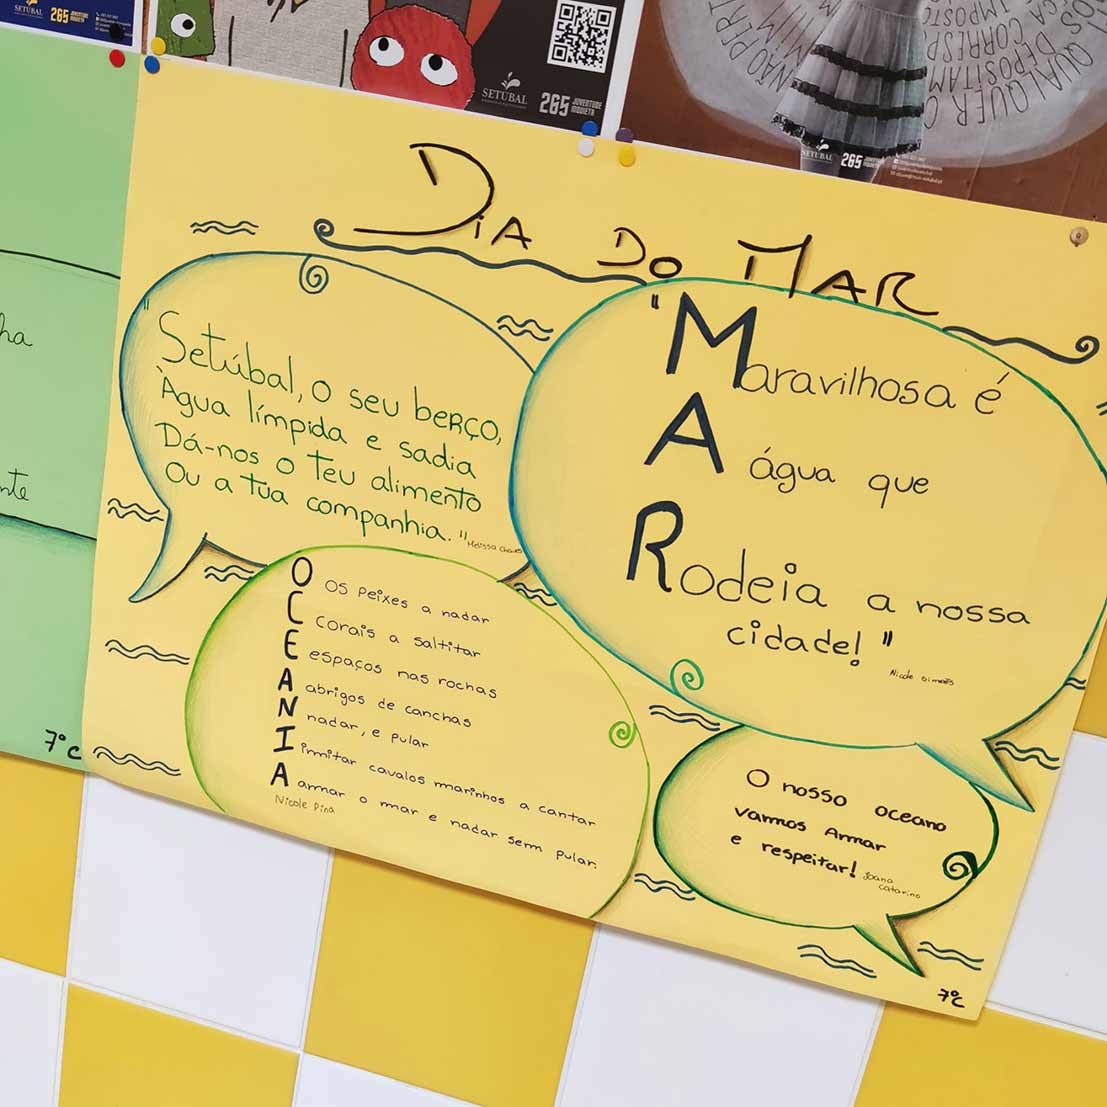 SETÚBAL
265 JUVENTUDE INQUIETA
SETÚBAL
265 JUVENTUDE INQUIETA
QUALQUER
DEPOSITAM
CORRESP
IMPOSTO
NÃO
SETÚBAL
265
DiA DO MAR
"Setúbal, o seu berço,
Água límpida e sadia
Dá-nos o teu alimento
Ou a tua companhia."
Melissa Chaves
"Maravilhosa é
A água que
Rodeia a nossa
cidade!"
Nicole Simões
O OS Peixes a nadar
C corais a saltitar
E espaços nas rochas
A abrigos de canchas
N nadar, e pular
I immitar cavalos marinhos a cantar
A amar o mar e nadar sem pular.
Nicole Pina
O nosso oceano
vamos Amar
e respeitar!
Joana
Catarino
7ºC
ha
nte
7ºC